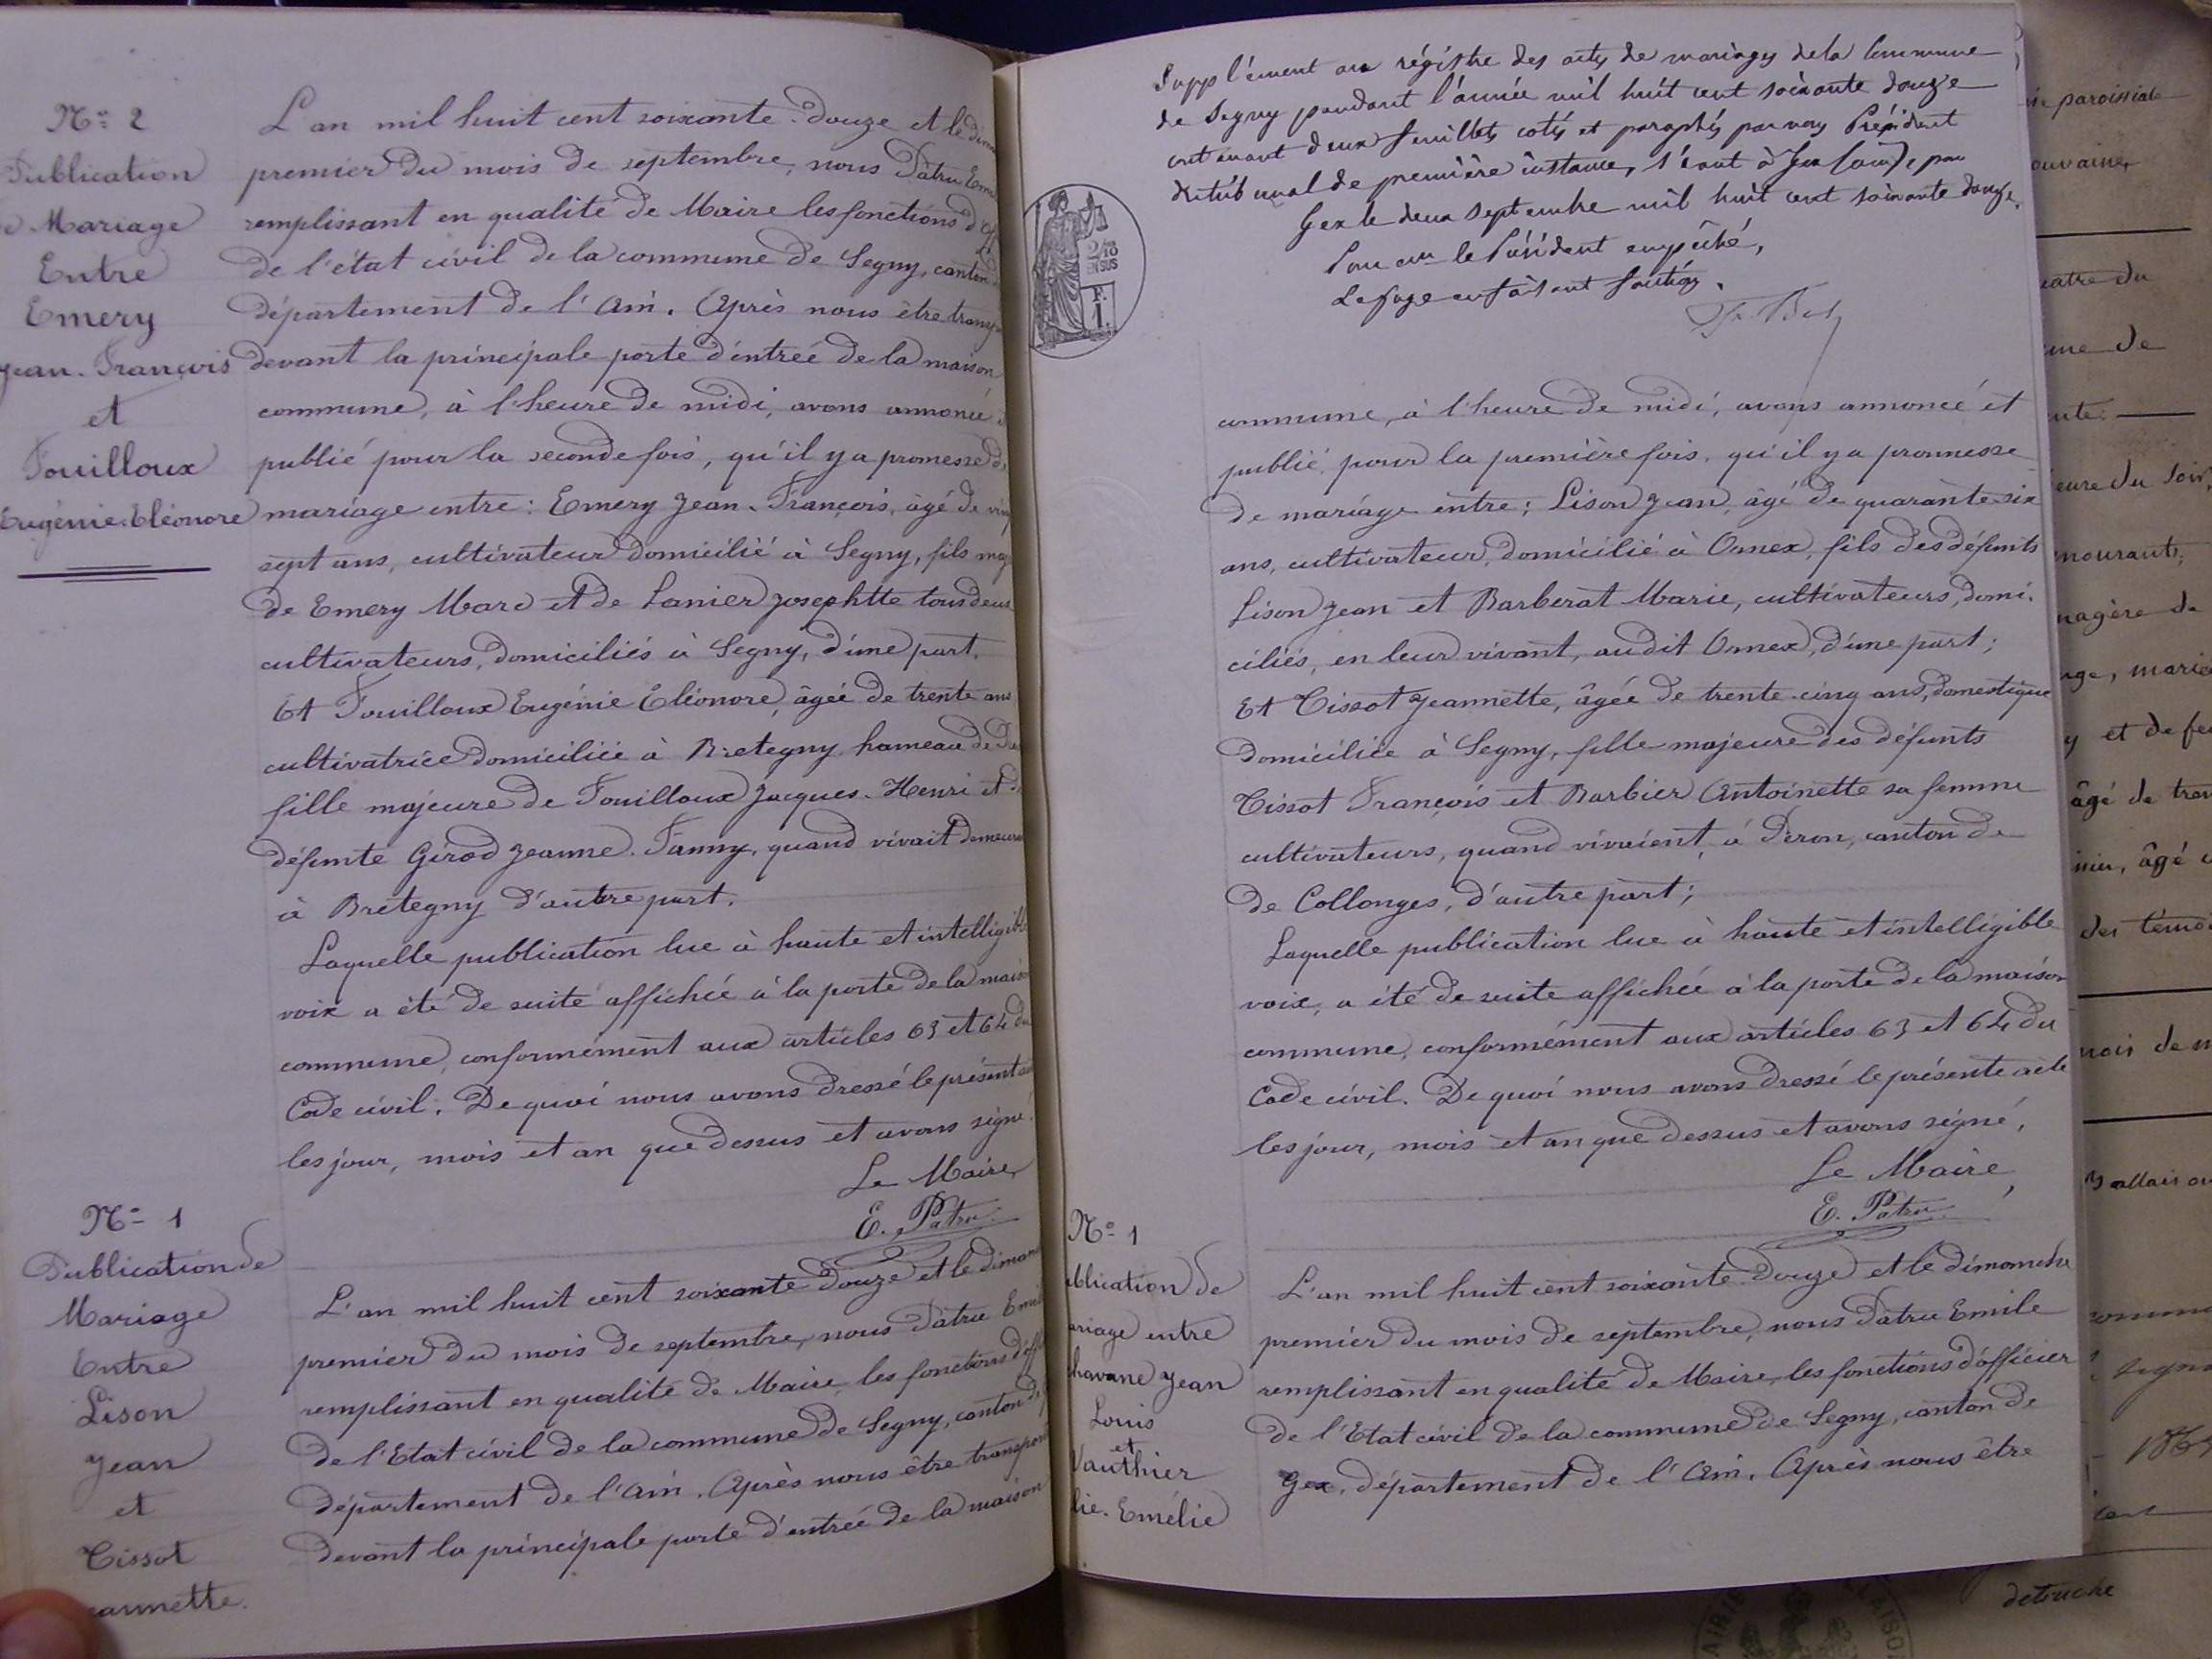 Nº 2
Publication
Mariage
Entre
Emery
Jean-François
et
Fouilloux
Eugénie Eléonore
L'an mil huit cent soixante-douze et le
premier du mois de septembre, nous Patru
remplissant en qualité de Maire les fonctions
de l'état civil de la commune de Segny, canton
département de l'Ain. Après nous être
devant la principale porte d'entrée de la maison
commune, à l'heure de midi, avons annoncé
publié pour la seconde fois, qu'il y a promesse
mariage entre: Emery Jean-François, âgé de
sept ans, cultivateur domicilié à Segny, fils
de Emery Marc et de Lanier Josephtte tous deux
cultivateurs, domiciliés à Segny, d'une part.
Et Fouilloux Eugénie Eléonore, âgée de trente ans
cultivatrice domiciliée à Bretegny hameau de
fille majeure de Fouilloux Jacques-Henri et
défunte Girod Jeanne-Fanny, quand vivait
à Bretegny d'autre part.
Laquelle publication lue à haute et
voix a été de suite affichée à la porte de la
commune, conformément aux articles 63 et 64 du
Code civil. De quoi nous avons dressé le présent
les jour, mois et an que dessus et avons signé.
Le Maire,
E. Patru
Nº 1
Publication de
Mariage
Entre
Lison
Jean
et
Tissot
L'an mil huit cent soixante douze et le
premier du mois de septembre, nous Patru
remplissant en qualité de Maire, les fonctions
de l'Etat civil de la commune de Segny, canton
département de l'Ain. Après nous être
devant la principale porte d'entrée de la maison
Supplément au régistre des actes de mariages de la Commune
de Segny pendant l'année mil huit cent soixante douze
contenant deux feuillets cotés et paraphés par nous Président
du tribunal de première instance, séant à Gex
Gex le deux Septembre mil huit cent soixante douze.
Pour le Président empêché,
Le Juge en faisant
2/10
EN SUS
F.
1.
commune, à l'heure de midi, avons annoncé et
publié, pour la première fois, qu'il y a promesse
de mariage entre: Lison Jean, âgé de quarante-six
ans, cultivateur, domicilié à Ornex, fils des défunts
Lison Jean et Barberat Marie, cultivateurs, domi-
ciliés, en leur vivant, audit Ornex, d'une part;
Et Tissot Jeannette, âgée de trente-cinq ans, domestique
domiciliée à Segny, fille majeure des défunts
Tissot François et Barbier Antoinette sa femme
cultivateurs, quand vivaient, à Péron, canton de
de Collonges, d'autre part;
Laquelle publication lue à haute et intelligible
voix, a été de suite affichée à la porte de la maison
commune, conformément aux articles 63 et 64 du
Code civil. De quoi nous avons dressé le présente acte
les jour, mois et an que dessus et avons signé,
Le Maire,
E. Patru
Nº 1
de
entre
Jean
Louis
et
Vauthier
Emélie
L'an mil huit cent soixante-douze et le dimanche
premier du mois de septembre, nous Patru Emile
remplissant en qualité de Maire, les fonctions d'officier
de l'Etat civil de la commune de Segny, canton de
Gex, département de l'Ain. Après nous être
paroissiale
du
de
du soir,
de
et de
âgé de
âgé
des